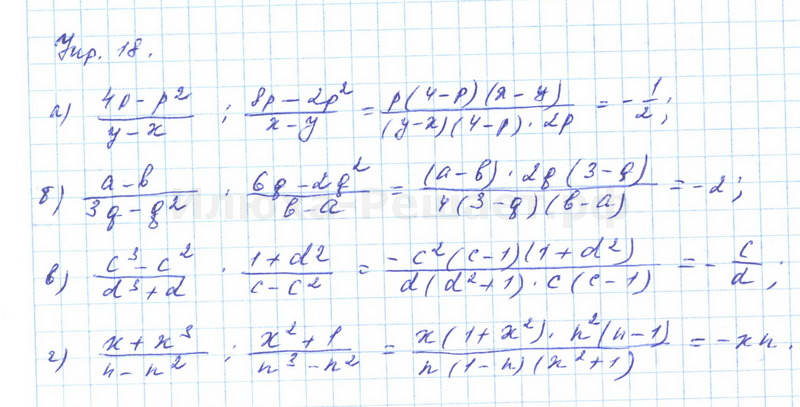 Упр. 18.
а) (4p - p²)/(y - x) : (8p - 2p²)/(x - y) = (p(4-p)(x-y))/((y-x)(4-p)·2p) = -1/2;
б) (a - b)/(3q - q²) · (6q - 2q²)/(b - a) = ((a-b)·2q(3-q))/(q(3-q)(b-a)) = -2;
в) (c³ - c²)/(d³ + d) · (1 + d²)/(c - c²) = (-c²(c-1)(1+d²))/(d(d²+1)·c(c-1)) = -c/d;
г) (x + x³)/(n - n²) : (x² + 1)/(n³ - n²) = (x(1+x²)·n²(n-1))/(n(1-n)(x²+1)) = -xn.